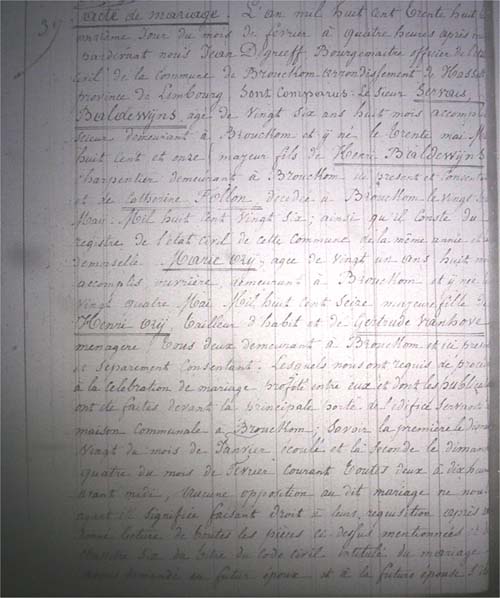 39
acte de mariage L'an mil huit cent trente huit
onzième jour du mois de fevrier à quatre heures après m
pardevant nous Jean Bourgemaitre officier de l'éta
civil de la Commune de Brouckom arrondissement de Hasse
province de Limbourg Sont Comparus. Le Sieur Servais
Baldewÿns agé de Vingt Six ans huit mois accomp
demeurant à Brouckom et ÿ né le trente mai M
huit cent et onze majeur fils de Henri Baldewÿns
charpentier demeurant à Brouckom ici present et Consentant
et de Catherine Follon decedée à Brouckom le vingt
Mai Mil huit Cent Vingt Six; ainsi qu'il Conste du
registre de l'état Civil de cette Commune de la même année et
demoiselle Marie Orÿ, agee de Vingt un ans huit m
accomplis, ouvrière, demeurant à Brouckom et ÿ née le
Vingt quatre Mai Mil huit Cent Seize majeure fille de
Henri Orÿ tailleur d'habit et de Gertrude Vanhove
menagere tous deux demeurant à Brouckom et ici pres
et Separement Consentant. Lesquels nous ont requis de proce
à la Celebration de mariage projeté entre eux et dont les publica
ont été faites devant la principale porte de l'édifice Servant
maison Communale à Brouckom; Savoir la premiere le diman
Vingt du mois de Janvier écoulé et la Seconde le diman
quatre du mois de fevrier Courant toutes deux à dix heur
avant midi, aucune opposition au dit mariage ne nou
aÿant été Signifiée faisant droit à leur requisition après a
donné lecture de toutes les pièces ci dessus mentionnées
chapitre Six du titre du Code civil intitulé du mariage
avons demandé au futur époux et à la future épouse S'il